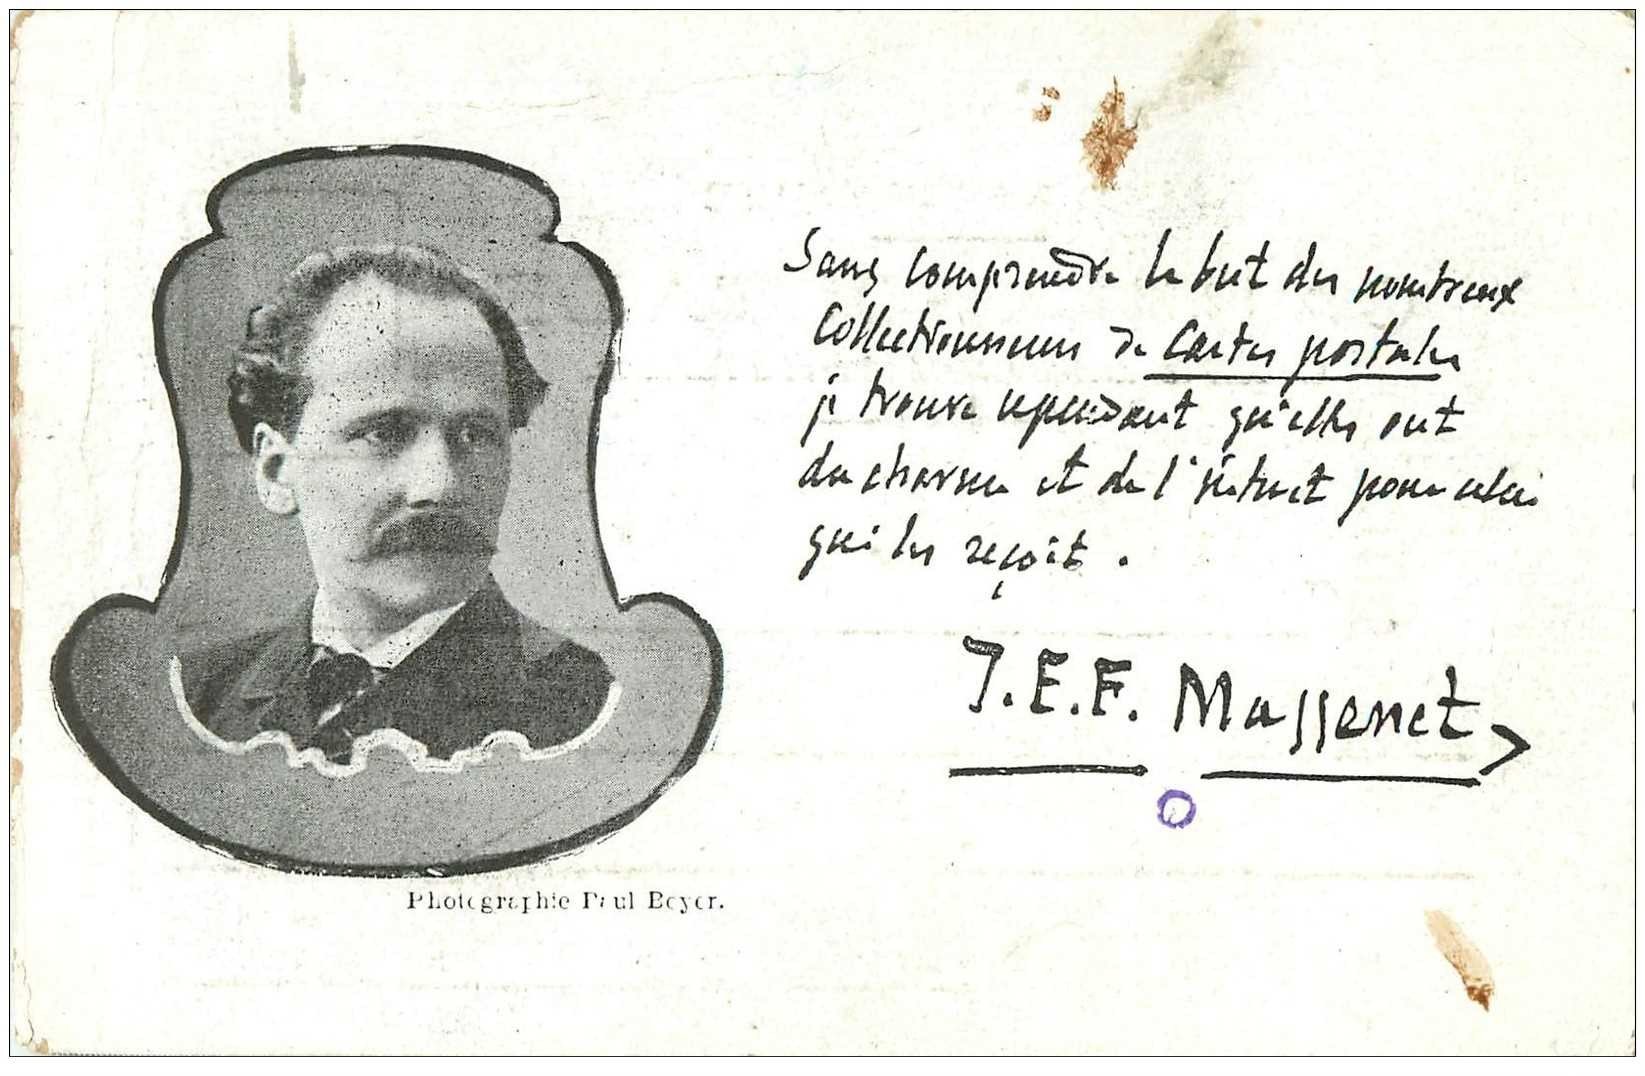 Sans comprendre le but des nombreux
Collectionneurs de Cartes postales
je trouve cependant qu'elles ont
du charme et de l'intérêt pour celui
qui les reçoit.
J.E.F. Massenet
Photographie Paul Beyer.